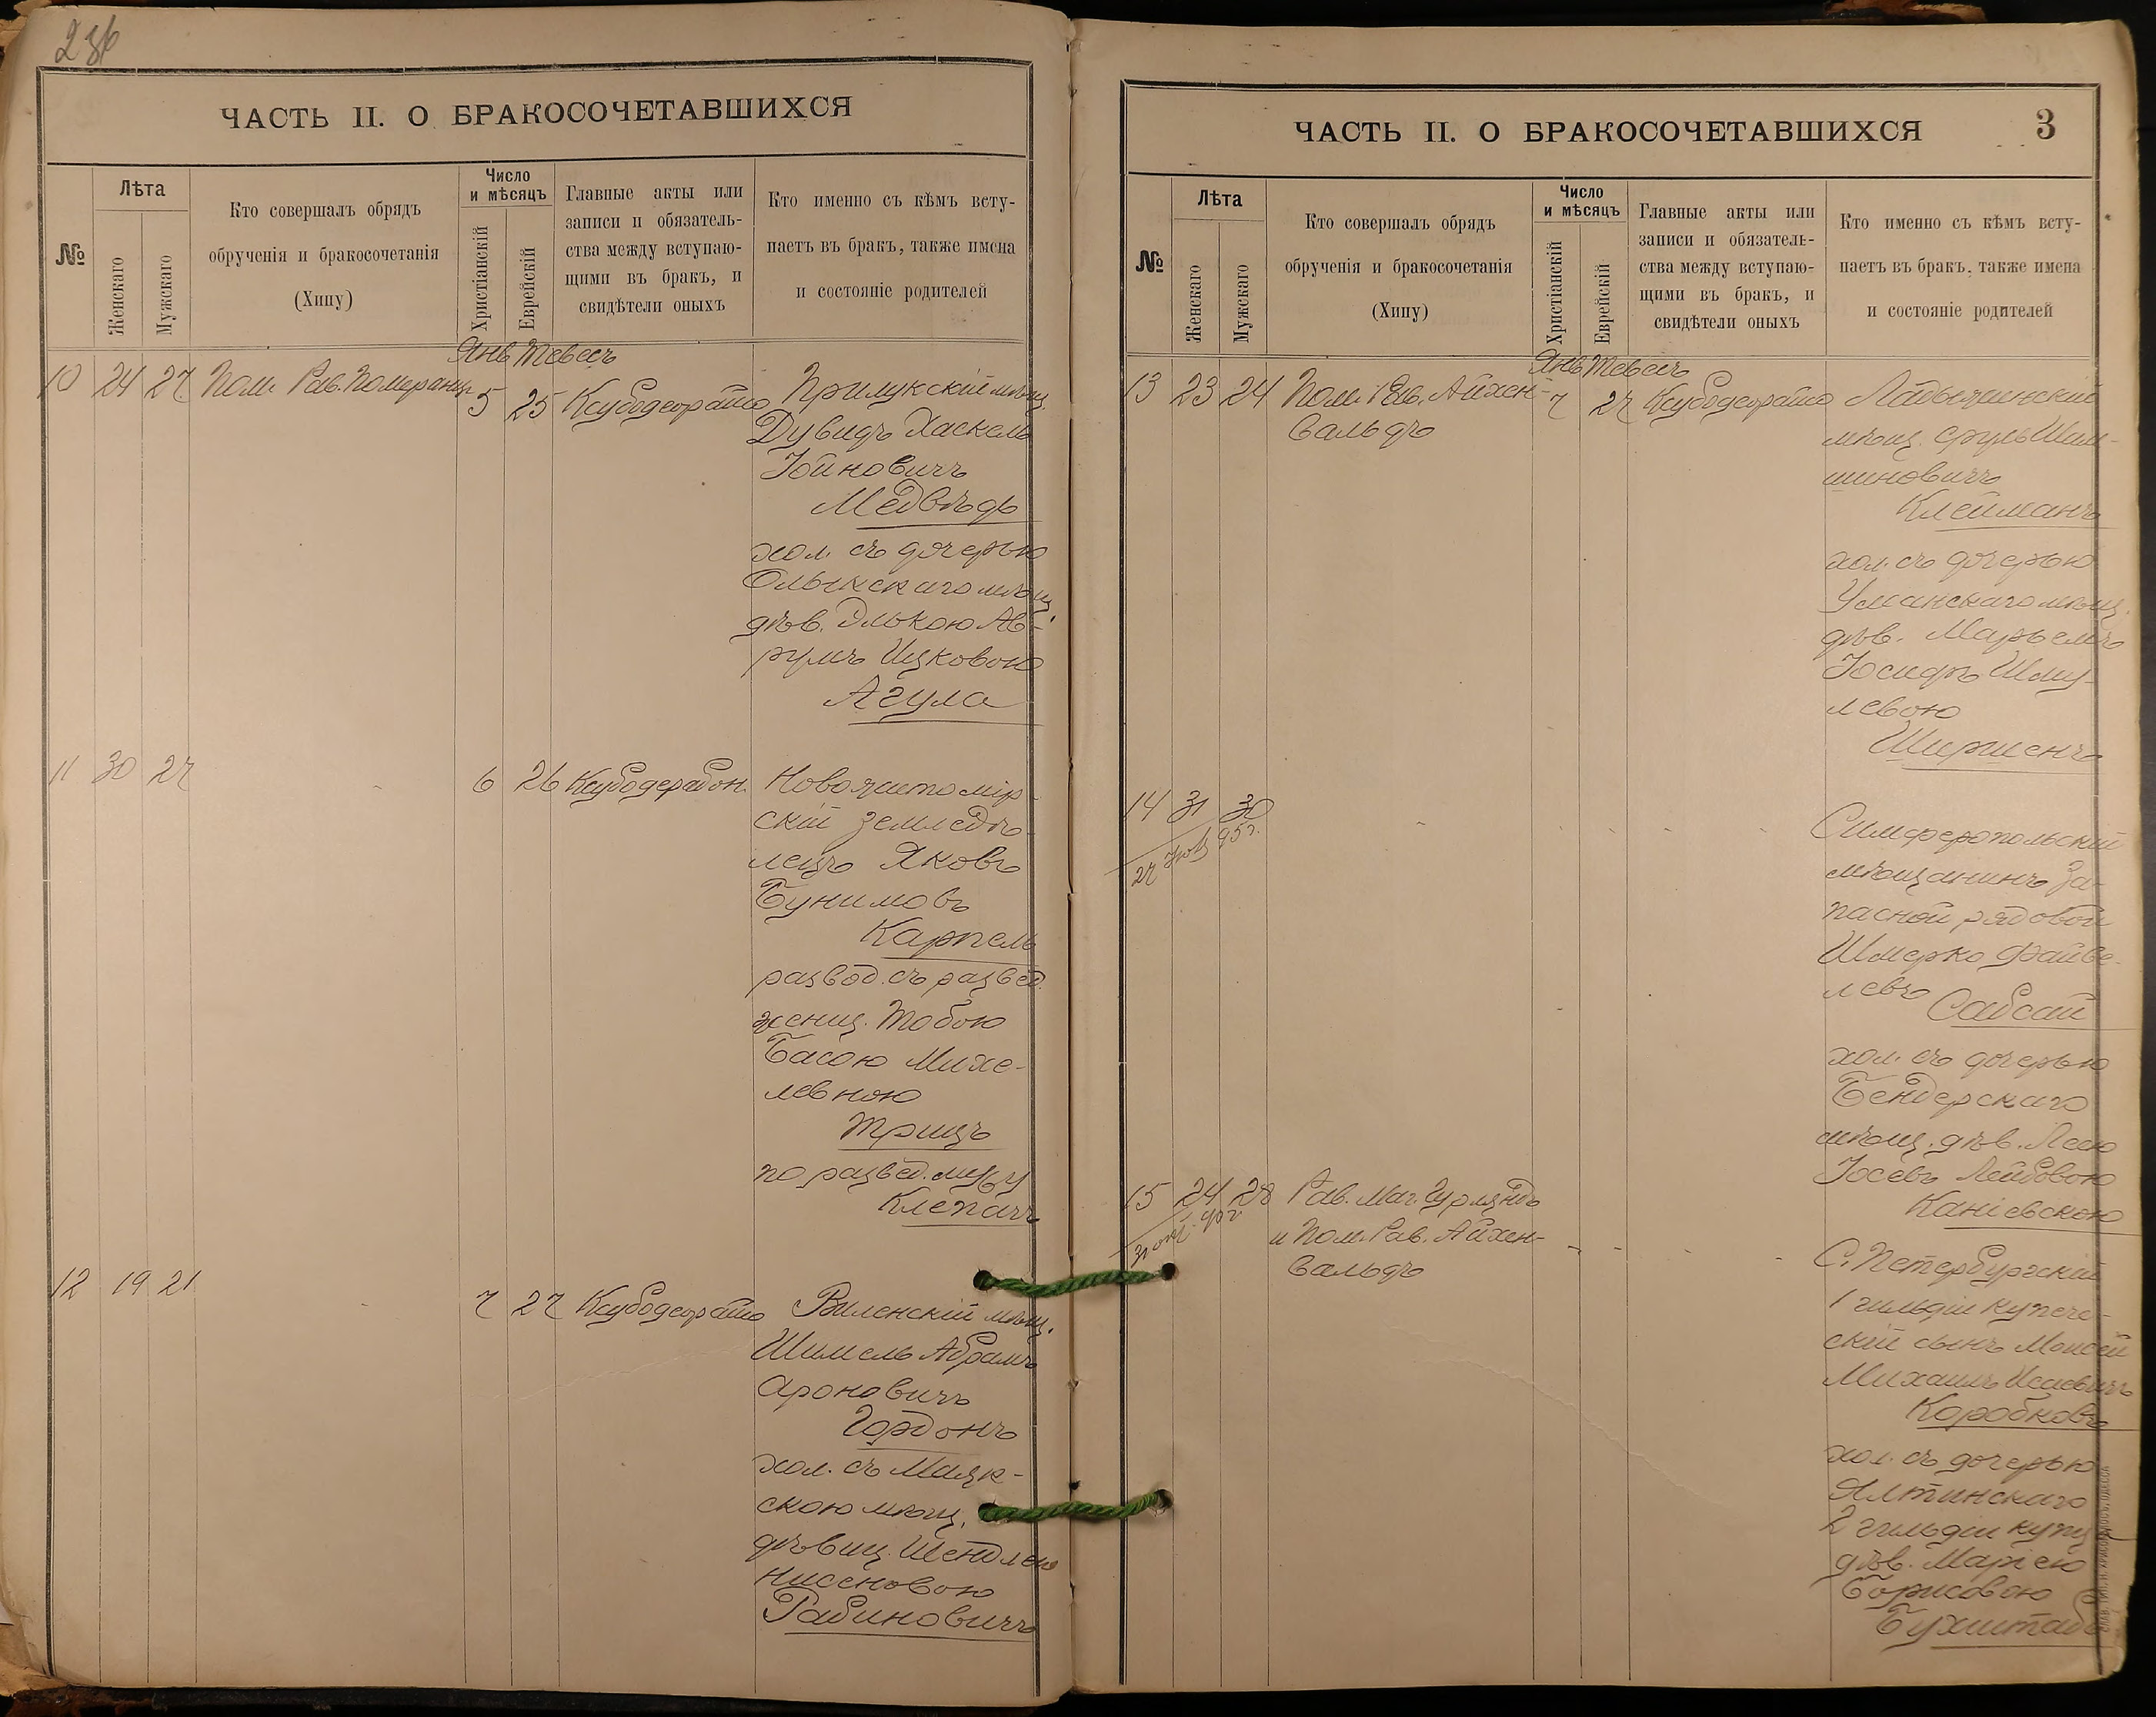 236
ЧАСТЬ II. О БРАКОСОЧЕТАВШИХСЯ
№
Лѣта
Женскаго
Мужскаго
Кто совершалъ обрядъ
обрученія и бракосочетанія
(Хипу)
Число
и мѣсяцъ
Христіанскій
Еврейскій
Главные акты или
записи и обязатель-
ства между вступаю-
щими въ бракъ, и
свидѣтели оныхъ
Кто именно съ кѣмъ всту-
паетъ въ бракъ, также имена
и состояніе родителей
Янв Тевесъ
10 24 27 Пом. Рав. Померанцъ 5 25 Ксубодеорайсо Прилукскій мѣщ.
Дувидъ Хаскель
Іойновичъ
Медвѣдь
хол. съ дочерью
Олыкскаго мѣщ.
дѣв. Элькою Ав-
румъ Ицковою
Агула
11 30 27 6 26 Ксубодерабон. Новожитомір-
скій земледѣ-
лецъ Яковъ
Бунимовъ
Карпель
развод. съ развед.
женщ. Тобою
Басою Михе-
левною
Трицъ
по развед. мужу
Клепачъ
12 19 21 7 27 Ксубодеорайсо Виленскій мѣщ.
Шимель Абрамъ
Ароновичъ
Гордонъ
хол. съ Маяк-
скою мѣщ.
дѣвиц. Шендлею
Нисеновою
Рабиновичъ
ЧАСТЬ II. О БРАКОСОЧЕТАВШИХСЯ
3
№
Лѣта
Женскаго
Мужскаго
Кто совершалъ обрядъ
обрученія и бракосочетанія
(Хипу)
Число
и мѣсяцъ
Христіанскій
Еврейскій
Главные акты или
записи и обязатель-
ства между вступаю-
щими въ бракъ, и
свидѣтели оныхъ
Кто именно съ кѣмъ всту-
паетъ въ бракъ, также имена
и состояніе родителей
Янв Тевесъ
13 23 24 Пом. Рав. Айхен- 7 27 Ксубодеорайсо Ладыжинскій
вальдъ
мѣщ. Сруль Шам-
шиновичъ
Клейманъ
хол. съ дочерью
Уманскаго мѣщ.
дѣв. Марьемъ
Іосифъ Шму-
левою
Ширшенъ
14 31 30 Симферопольскій
мѣщанинъ За-
пасной рядовой
Шмерко Файве-
левъ
Сабсай
хол. съ дочерью
Бендерскаго
мѣщ. дѣв. Леею
Іосевъ Лейбовою
Каніевскою
15 24 28 Рав. Маг. Гурляндъ
и Пом. Рав. Айхен-
вальдъ
С. Петербургскій
1 гильдіи купече-
скій сынъ Моисей
Михаилъ Исаевичъ
Коробковъ
хол. съ дочерью
Ялтинскаго
2 гильдіи купц
дѣв. Маріею
Борисовою
Бухштабъ